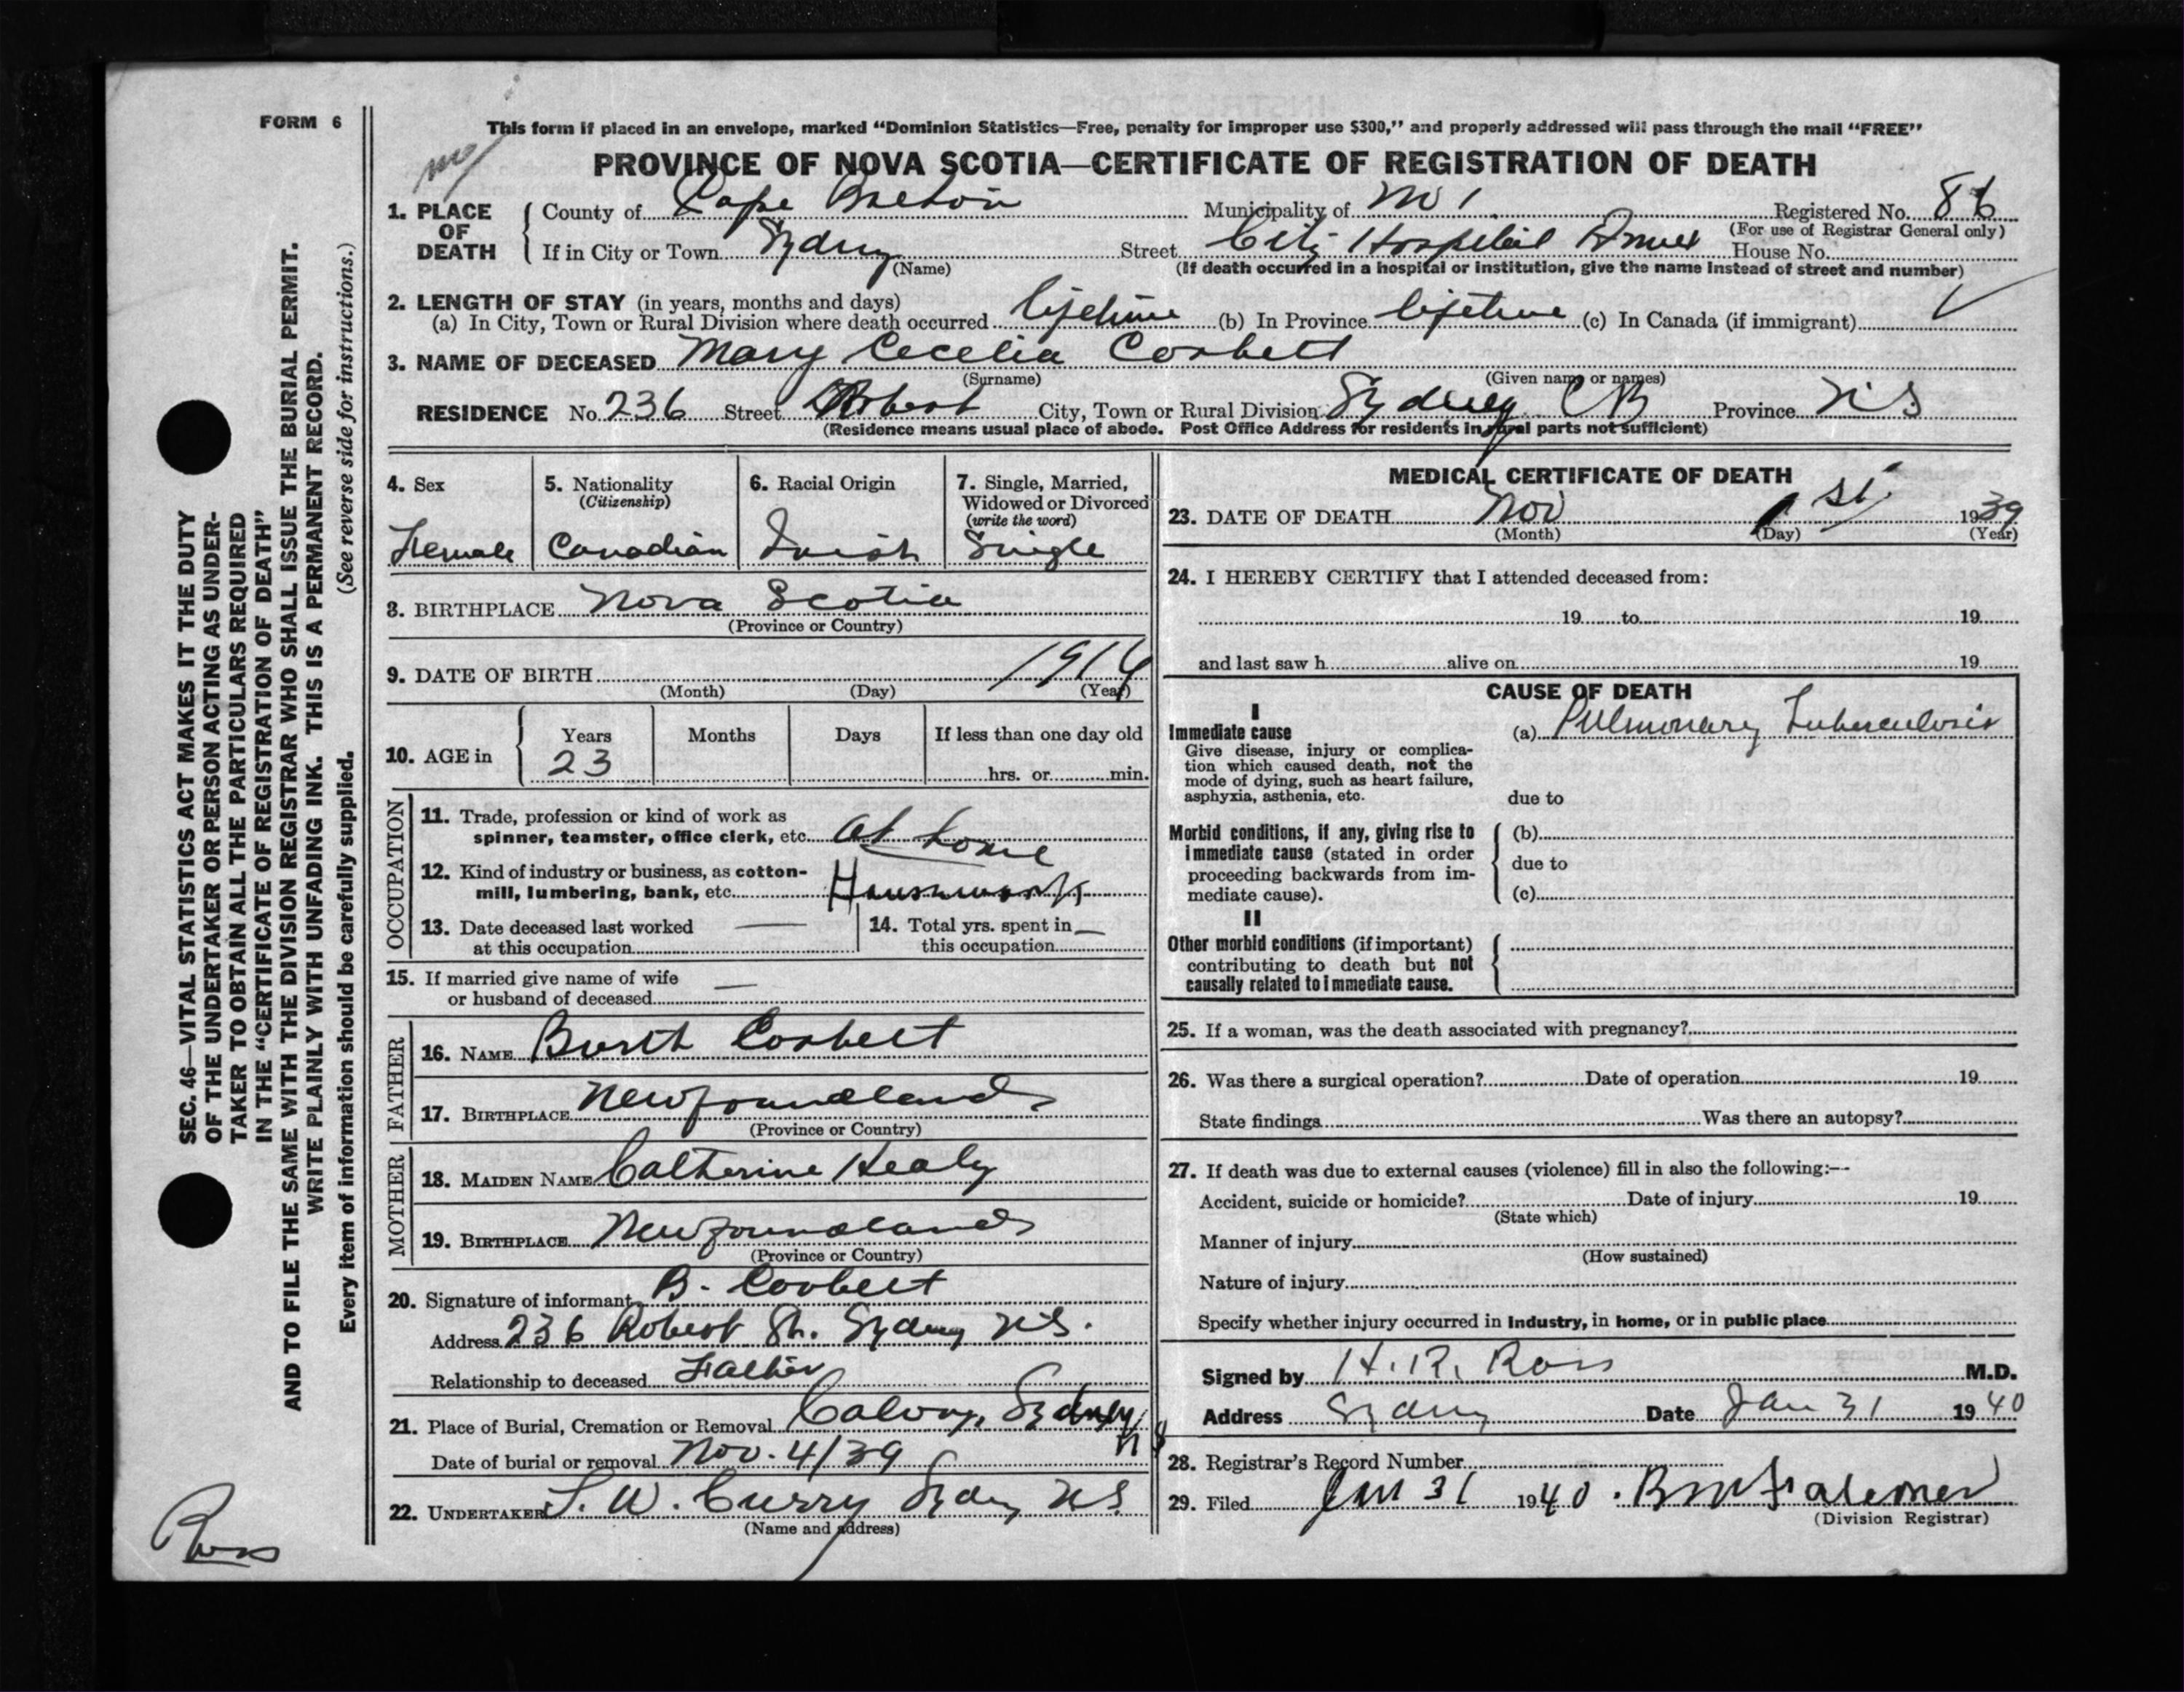 FORM 6
This form if placed in an envelope, marked “Dominion Statistics—Free, penalty for improper use $300,” and properly addressed will pass through the mail “FREE”
PROVINCE OF NOVA SCOTIA—CERTIFICATE OF REGISTRATION OF DEATH
1. PLACE OF DEATH
County of Cape Breton Municipality of No 1. Registered No. 86
(For use of Registrar General only)
If in City or Town Sydney Street City Hospital Annex House No.
(Name) (If death occurred in a hospital or institution, give the name instead of street and number)
2. LENGTH OF STAY (in years, months and days)
(a) In City, Town or Rural Division where death occurred lifetime (b) In Province lifetime (c) In Canada (if immigrant)
3. NAME OF DECEASED Mary Cecelia Corbett
(Surname) (Given name or names)
RESIDENCE No. 236 Street Robert City, Town or Rural Division Sydney CB Province N S
(Residence means usual place of abode. Post Office Address for residents in rural parts not sufficient)
4. Sex
Female
5. Nationality
(Citizenship)
Canadian
6. Racial Origin
Irish
7. Single, Married,
Widowed or Divorced
(write the word)
Single
8. BIRTHPLACE Nova Scotia
(Province or Country)
9. DATE OF BIRTH 1914
(Month) (Day) (Year)
10. AGE in
Years Months Days If less than one day old
23 hrs. or min.
OCCUPATION
11. Trade, profession or kind of work as
spinner, teamster, office clerk, etc. at home
12. Kind of industry or business, as cotton-
mill, lumbering, bank, etc. Housework
13. Date deceased last worked —
at this occupation
14. Total yrs. spent in —
this occupation
15. If married give name of wife —
or husband of deceased
FATHER
16. NAME Corbett
17. BIRTHPLACE Newfoundland
(Province or Country)
MOTHER
18. MAIDEN NAME Catherine Healy
19. BIRTHPLACE Newfoundland
(Province or Country)
20. Signature of informant B. Corbett
Address 236 Robert St. Sydney N.S.
Relationship to deceased Father
21. Place of Burial, Cremation or Removal Calvary, Sydney N S
Date of burial or removal Nov. 4/39
22. UNDERTAKER W. Curry Sydney N S
(Name and address)
MEDICAL CERTIFICATE OF DEATH
23. DATE OF DEATH Nov 1 st. 1939
(Month) (Day) (Year)
24. I HEREBY CERTIFY that I attended deceased from:
19 to 19
and last saw h alive on 19
CAUSE OF DEATH
I
Immediate cause
Give disease, injury or complica-
tion which caused death, not the
mode of dying, such as heart failure,
asphyxia, asthenia, etc.
(a) Pulmonary Tuberculosis
due to
Morbid conditions, if any, giving rise to
immediate cause (stated in order
proceeding backwards from im-
mediate cause).
(b)
due to
(c)
II
Other morbid conditions (if important)
contributing to death but not
causally related to immediate cause.
25. If a woman, was the death associated with pregnancy?
26. Was there a surgical operation? Date of operation 19
State findings Was there an autopsy?
27. If death was due to external causes (violence) fill in also the following:—
Accident, suicide or homicide? Date of injury 19
(State which)
Manner of injury
(How sustained)
Nature of injury
Specify whether injury occurred in Industry, in home, or in public place
Signed by H. R. Ross M.D.
Address Sydney Date Jan 31 1940
28. Registrar's Record Number
29. Filed Jan 31 1940.
(Division Registrar)
SEC. 46—VITAL STATISTICS ACT MAKES IT THE DUTY
OF THE UNDERTAKER OR PERSON ACTING AS UNDER-
TAKER TO OBTAIN ALL THE PARTICULARS REQUIRED
IN THE “CERTIFICATE OF REGISTRATION OF DEATH”
AND TO FILE THE SAME WITH THE DIVISION REGISTRAR WHO SHALL ISSUE THE BURIAL PERMIT.
WRITE PLAINLY WITH UNFADING INK. THIS IS A PERMANENT RECORD.
Every item of information should be carefully supplied. (See reverse side for instructions.)
Ross